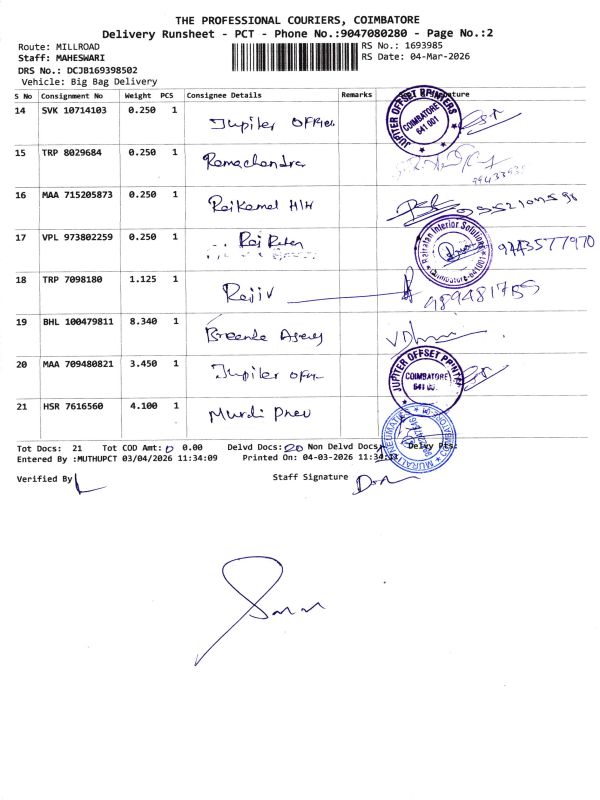 THE PROFESSIONAL COURIERS, COIMBATORE
Delivery Runsheet - PCT - Phone No.:9047080280 - Page No.:2
Route: MILLROAD RS No.: 1693985
Staff: MAHESWARI RS Date: 04-Mar-2026
DRS No.: DCJB169398502
Vehicle: Big Bag Delivery
S No Consignment No Weight PCS Consignee Details Remarks
14 SVK 10714103 0.250 1 Jupiter
JUPITER OFFSET PRINTERS COIMBATORE 641 001
15 TRP 8029684 0.250 1 Ramachandra
16 MAA 715205873 0.250 1 Rajkamal H/H
17 VPL 973802259 0.250 1 Raj Ratan
Rajratan Interior Solutions Coimbatore-641001 9443577970
18 TRP 7098180 1.125 1 Rajiv
19 BHL 100479811 8.340 1
20 MAA 709480821 3.450 1 Jupiter
JUPITER OFFSET PRINTER COIMBATORE
21 HSR 7616560 4.100 1
Tot Docs: 21 Tot COD Amt: 0 0.00 Delvd Docs: 20 Non Delvd Docs
Entered By :MUTHUPCT 03/04/2026 11:34:09 Printed On: 04-03-2026
Verified By Staff Signature